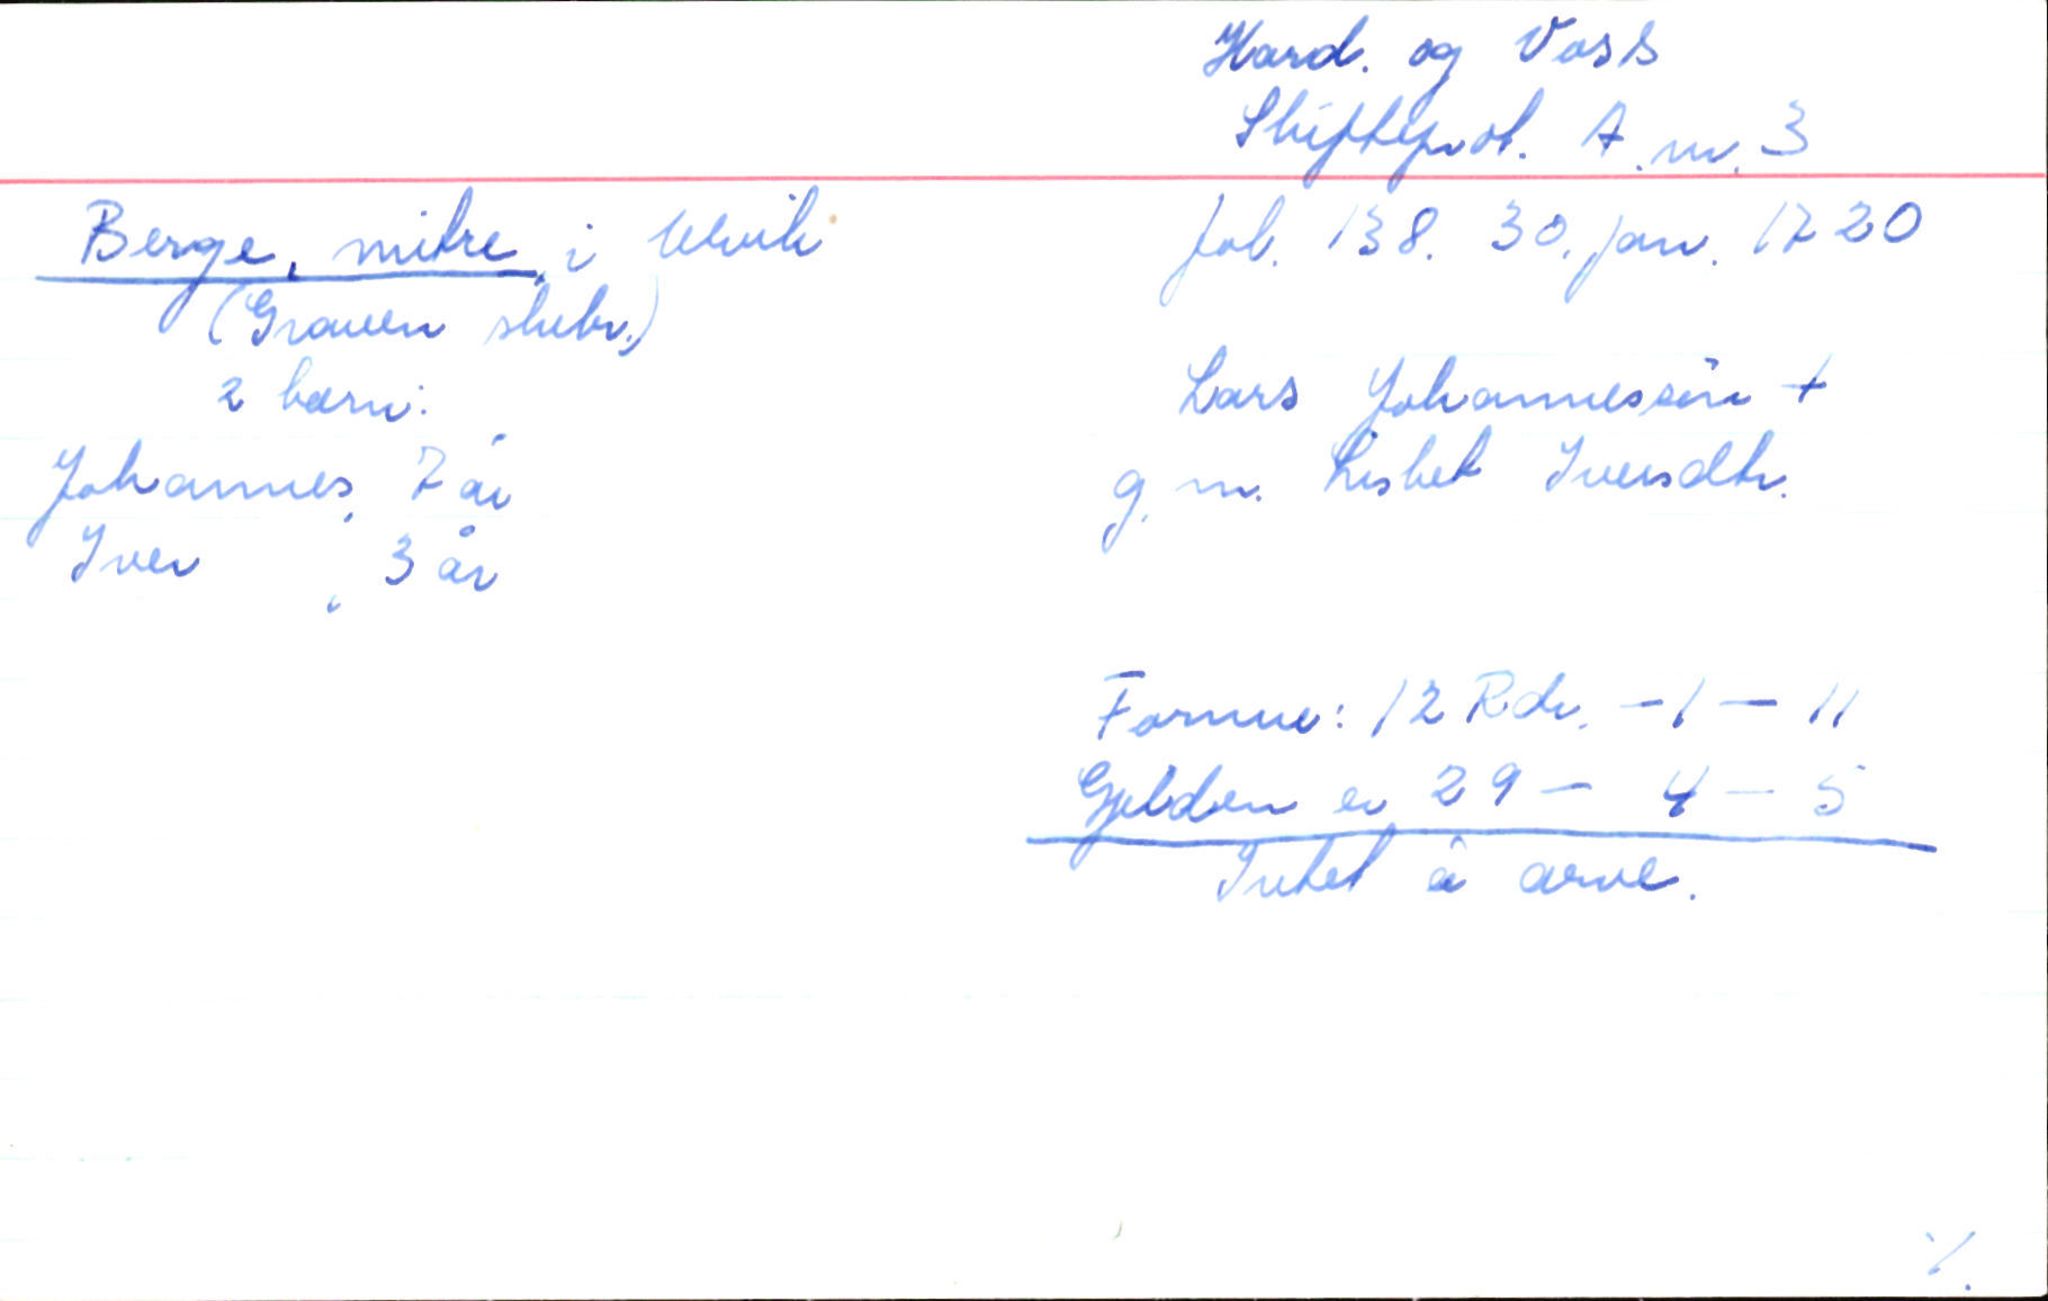 Hard. og Voss
Skifteprot. A. nr. 3
Berge, mitre, i Ulvik
fol. 138. 30. jan. 1720
(Graven skibr.)
2 barn:
Lars Johannessøn +
Johannes, 7 år
g. m. Lisbet Iversdtr.
Iver, 3 år
Formue: 12 Rdr. - 1 - 11
Gjelden er 29 - 4 - 5
Intet å arve.
%.